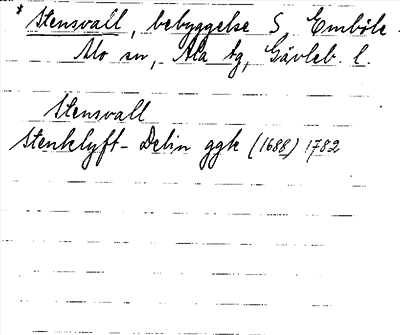 * Stensvall, bebyggelse S Emböle.
Mo sn, Ala tg, Gävleb. l.
Stensvall
Stenklyft- Delin ggk (1688) 1782